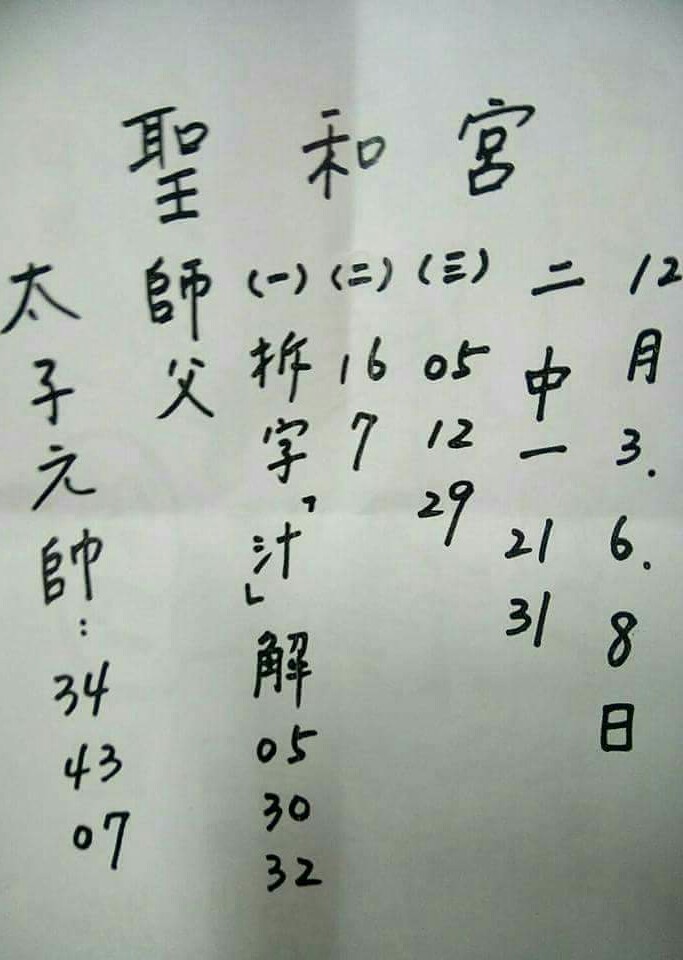 聖和宮
太子元帥：34 43 07
師父
(一)拆字「汁」解 05 30 32
(二) 16 7
(三) 05 12 29
二中一 21 31
12月3.6.8日